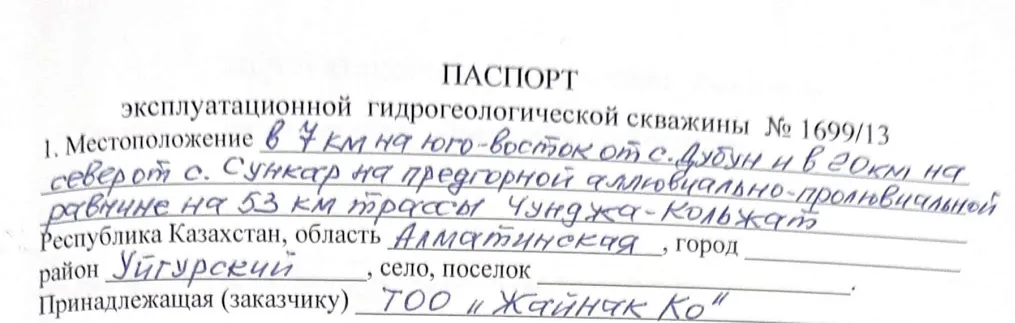 ПАСПОРТ
эксплуатационной гидрогеологической скважины № 1699/13
1. Местоположение в 7 км на юго-восток от с. Дубун и в 20 км на
север от с. Сункар на предгорной аллювиально-пролювиальной
равнине на 53 км трассы Чунджа-Кольжат
Республика Казахстан, область Алматинская, город
район Уйгурский, село, поселок.
Принадлежащая (заказчику) ТОО „Жайнак Ко"